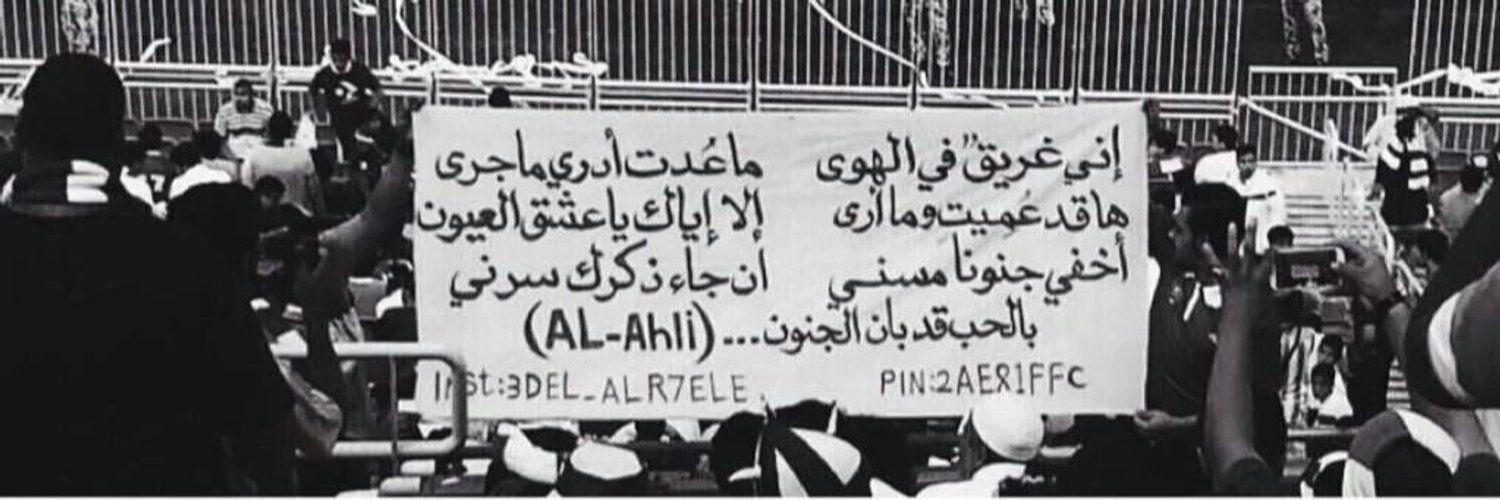 إني غريقٌ في الهوى ما عُدت أدري ما جرى
ها قد عُميت وما أرى إلا إياك يا عشق العيون
أخفي جنونا مسني ان جاء ذكرك سرني
بالحب قد بان الجنون... (AL-Ahli)
Inst:3DEL_ALR7ELE. PIN:2AE81FFC